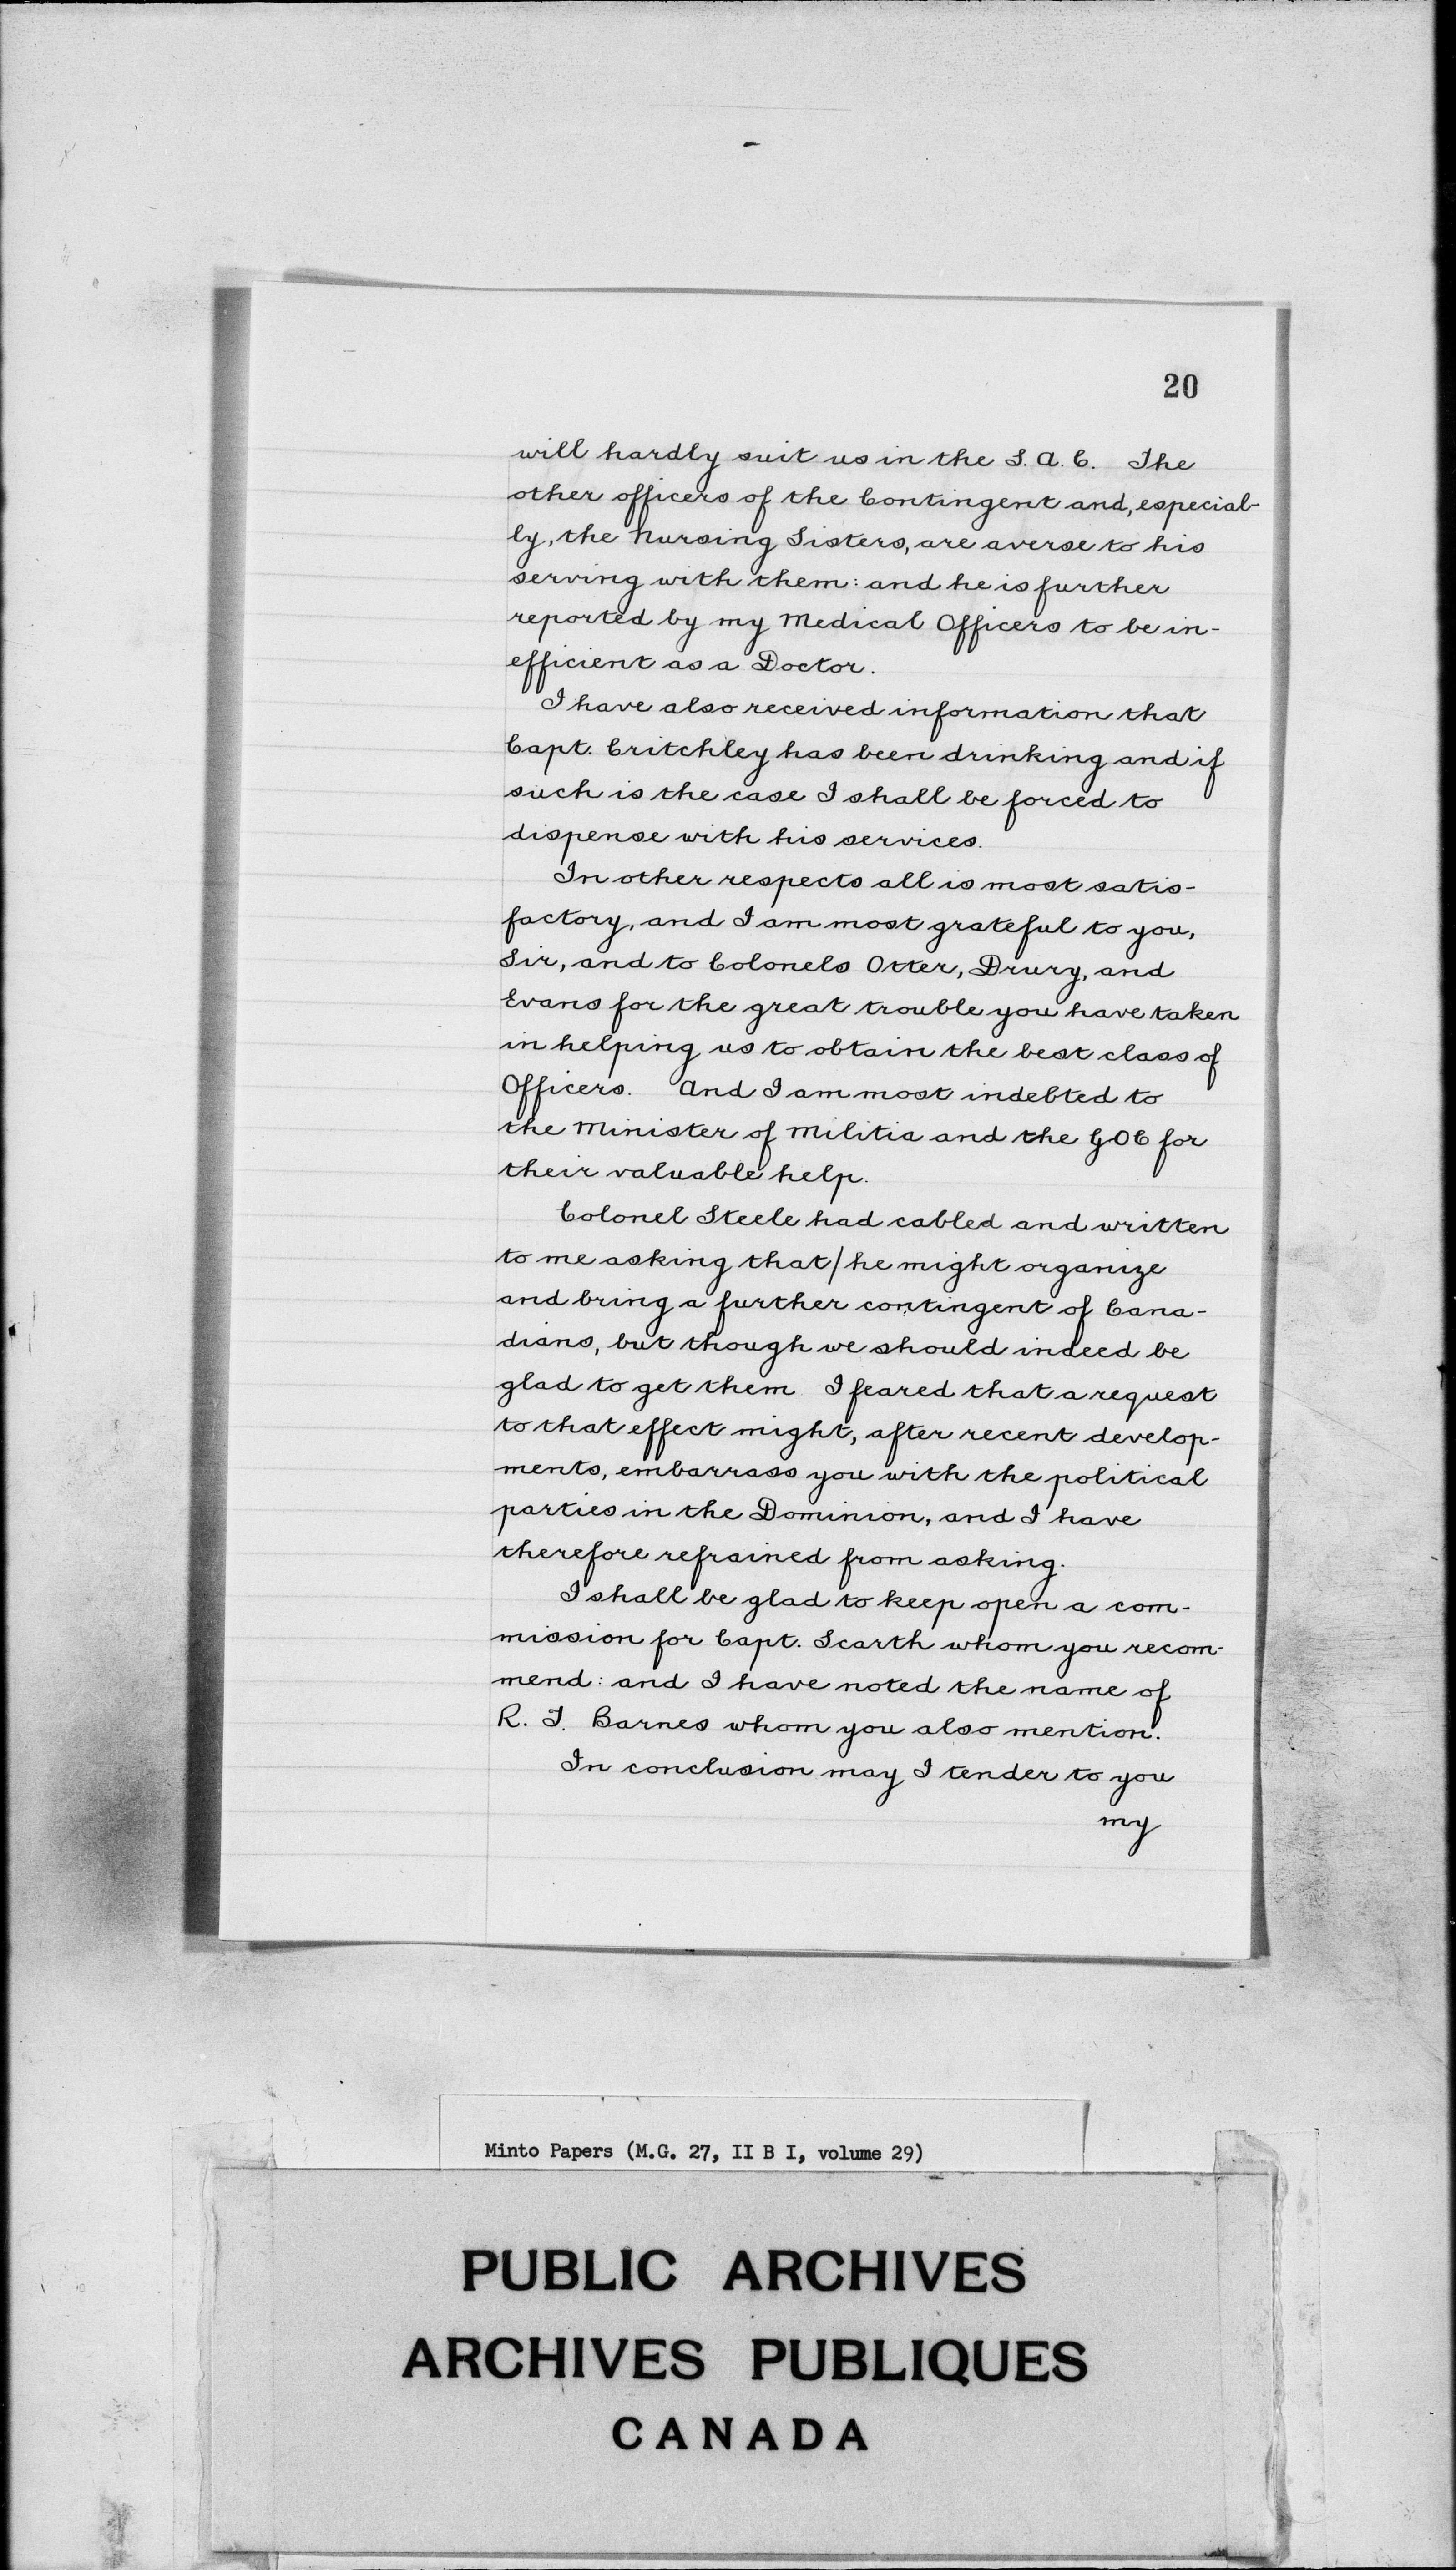 20
will hardly suit us in the S. A. C. The
other officers of the Contingent and, especial-
ly, the Nursing Sisters, are averse to his
serving with them: and he is further
reported by my Medical Officers to be in-
efficient as a Doctor.
I have also received information that
Capt. Critchley has been drinking and if
such is the case I shall be forced to
dispense with his services.
In other respects all is most satis-
factory, and I am most grateful to you,
Sir, and to Colonels Otter, Drury, and
Evans for the great trouble you have taken
in helping us to obtain the best class of
Officers. And I am most indebted to
the Minister of Militia and the GOC for
their valuable help.
Colonel Steele had cabled and written
to me asking that/he might organize
and bring a further contingent of Cana-
dians, but though we should indeed be
glad to get them I feared that a request
to that effect might, after recent develop-
ments, embarrass you with the political
parties in the Dominion, and I have
therefore refrained from asking.
I shall be glad to keep open a com-
mission for Capt. Scarth whom you recom-
mend: and I have noted the name of
R. T. Barnes whom you also mention.
In conclusion may I tender to you
my
Minto Papers (M.G. 27, II B I, volume 29)
PUBLIC ARCHIVES
ARCHIVES PUBLIQUES
CANADA